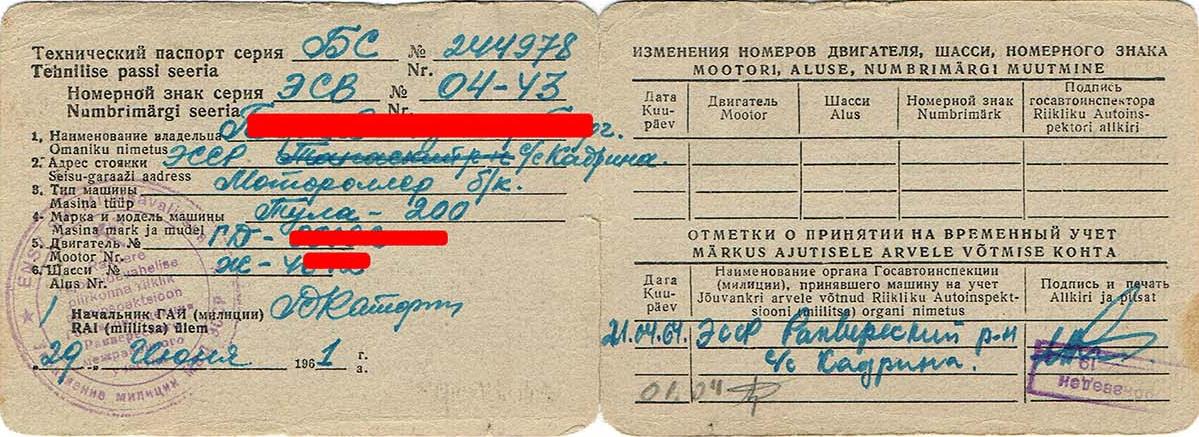 Технический паспорт серия БС № 244978
Tehnilise passi seeria Nr.
Номерной знак серия ЭСВ № 04-43
Numbrimärgi seeria Nr.
1. Наименование владельца
Omaniku nimetus
2. Адрес стоянки ЭССР с/с Кадрина.
Seisu-garaaži aadress
3. Тип машины Мотороллер б/к.
Masina tüüp
4. Марка и модель машины Тула-200
Masina mark ja mudel
5. Двигатель № ГД-
Mootor Nr.
6. Шасси № Ж-
Alus Nr.
Начальник ГАИ (милиции)
RAI (miilitsa) ülem
„29" Июня 1961 г.
a.
ИЗМЕНЕНИЯ НОМЕРОВ ДВИГАТЕЛЯ, ШАССИ, НОМЕРНОГО ЗНАКА
MOOTORI, ALUSE, NUMBRIMÄRGI MUUTMINE
Дата
Kuu-
päev
Двигатель
Mootor
Шасси
Alus
Номерной знак
Numbrimärk
Подпись
госавтоинспектора
Riikliku Autoins-
pektori allkiri
ОТМЕТКИ О ПРИНЯТИИ НА ВРЕМЕННЫЙ УЧЕТ
MÄRKUS AJUTISELE ARVELE VÕTMISE KOHTA
Дата
Kuu-
päev
Наименование органа Госавтоинспекции
(милиции), принявшего машину на учет
Jõuvankri arvele võtnud Riikliku Autoinspekt-
siooni (miilitsa) organi nimetus
Подпись и печать
Allkiri ja pitsat
21.04.64. ЭССР Раквереский р-н
с/с Кадрина.